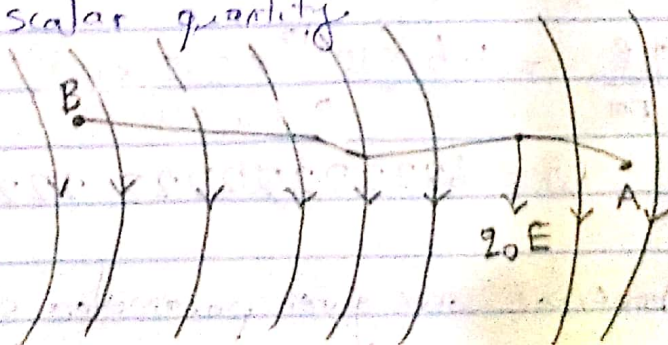 scalar quantity
B
A
q₀E